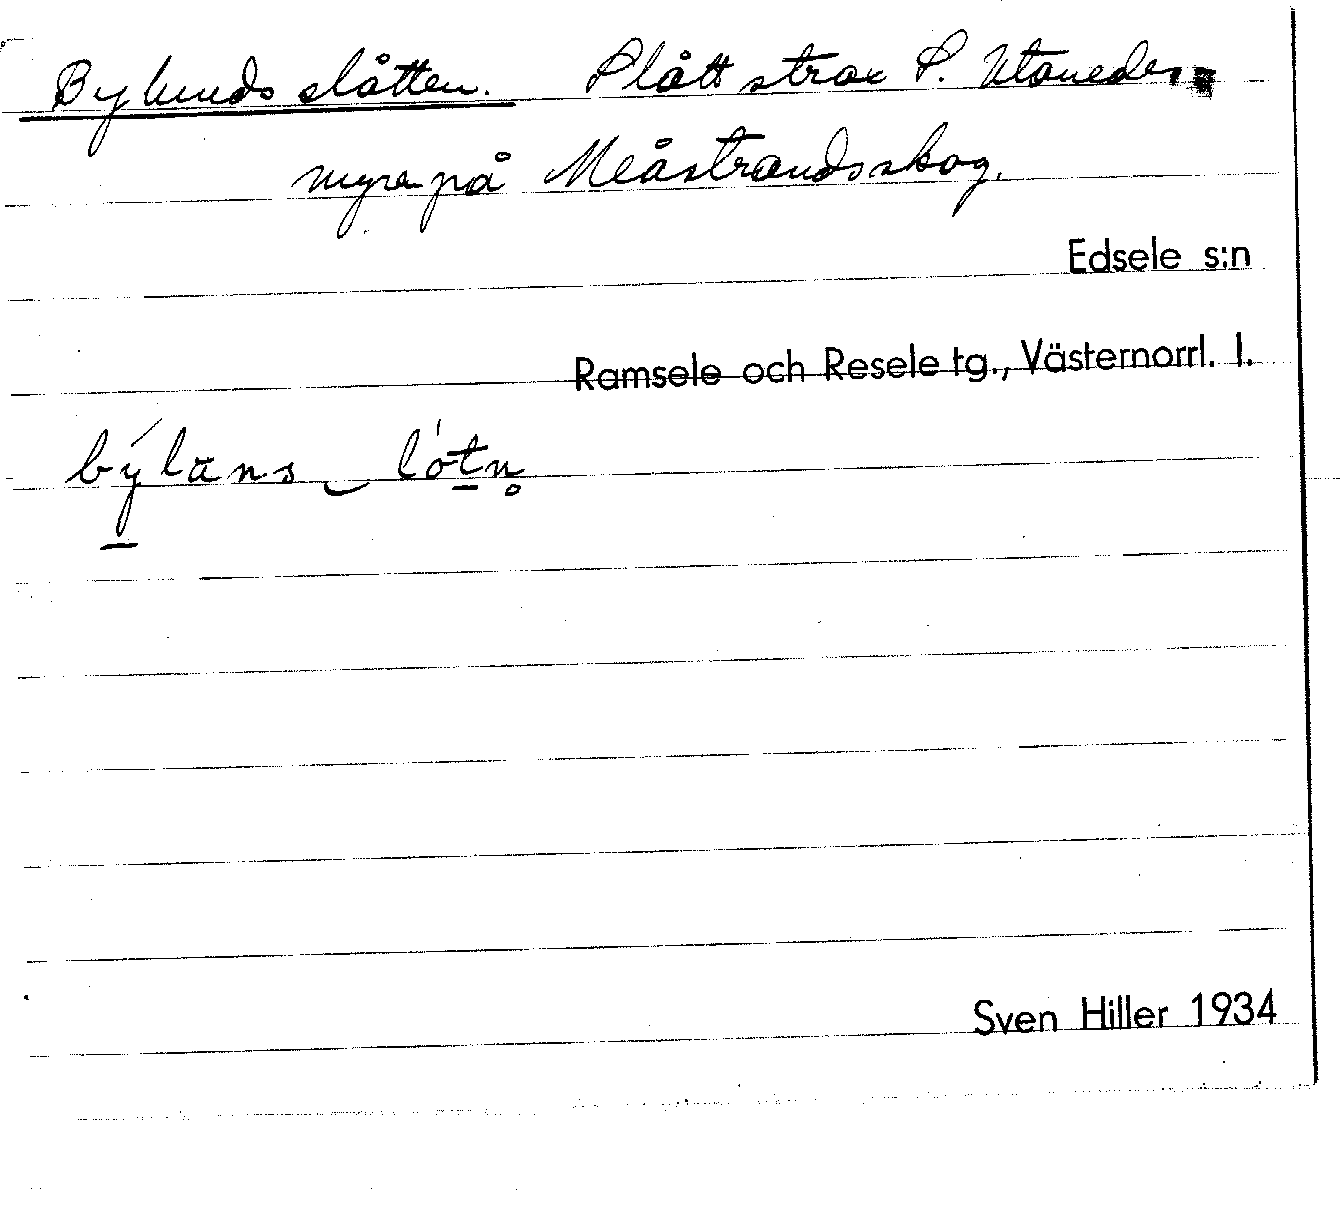 Bylundsslåtten. Slått strax S. Utanedes-
myren på Meåstrandsskog.
Edsele s:n
Ramsele och Resele tg., Västernorrl. l.
býlans lótn̥
Sven Hiller 1934